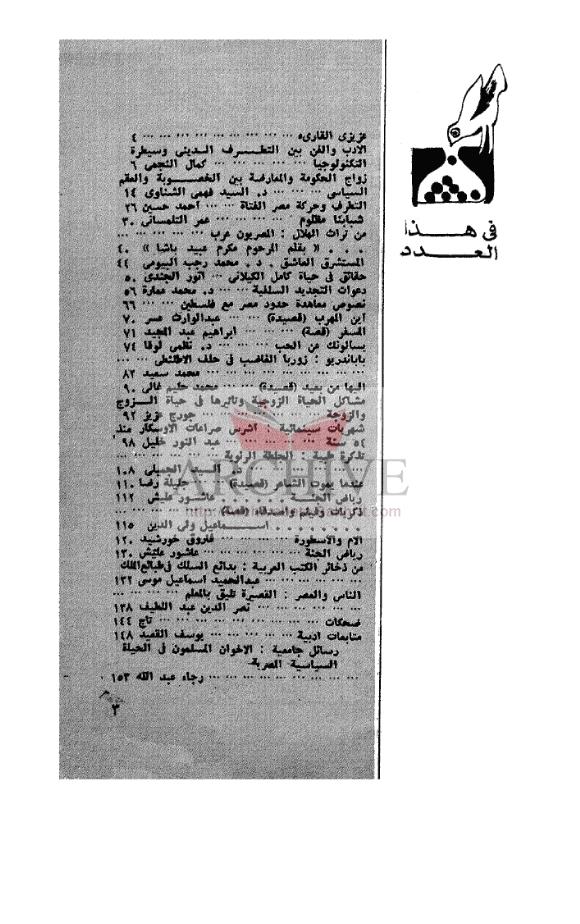 فى هذا
العدد
عزيزى القارىء ... ... ... ... ... ... ... ... ٤
الادب والفن بين التطرف الدينى وسيطرة
التكنولوجيا ... ... ... ... ... كمال النجمى ٦
زواج الحكومة والمعارضة بين الخصوبة والعقم
السياسى ... ... ... د. السيد فهمى الشناوى ١٤
التطرف وحركة مصر الفتاة ... احمد حسين ٢٦
شبابنا مظلوم ... ... ... ... عمر التلمسانى ٣٠
من تراث الهلال : المصريون عرب ... ... ...
. . . « بقلم المرحوم مكرم عبيد باشا » ٤٠
المستشرق العاشق . د . محمد رجب البيومى ٤٤
حقائق فى حياة كامل الكيلانى ... انور الجندى ٥٠
دعوات التجديد السلفية ... ... د. محمد عمارة ٥٦
نصوص معاهدة حدود مصر مع فلسطين ... ... ٦٦
اين المهرب (قصيدة) ... ... عبدالوارث عسر ٧٠
المسفر (قصة) ... ... ابراهيم عبد المجيد ٧١
يسالونك عن الحب ... ... ... د. نظمى لوقا ٧٤
باباندريو : زوربا الغاضب فى حلف الاطلنطى ...
... ... ... ... ... ... ... محمد سعيد ٨٢
اليها من بعيد (قصيدة) ... ... محمد حليم غالى ٩٠
مشاكل الحياة الزوجية وتاثرها فى حياة الزوج
والزوجة ... ... ... ... ... جورج عزيز ٩٢
شهريات سينمائية : أشرس صراعات الاوسكار منذ
٥٤ سنة ... ... ... ... عبد النور خليل ٩٨
تذكرة طبية : الجلطة الرئوية ... ... ... ...
... ... ... ... ... ... السيد الجميلى ١٠٨
عندما يموت الشاعر (قصيدة) ... جليلة رضا ١١٠
رياض الجنة ... ... ... ... عاشور عليش ١١٢
ذكريات وقيم واصدقاء (قصة) ... ... ... ...
. . . . . . . . . . اسماعيل ولى الدين ١١٥
الام والاسطورة ... ... ... فاروق خورشيد ١٢٠
رياض الجنة ... ... ... ... عاشور عليش ١٣٠
من ذخائر الكتب العربية : بدائع السلك فى طبائع الملك
... ... ... ... عبدالحميد اسماعيل موسى ١٣٢
الناس والعصر : القصيرة تليق بالمعلم ... ...
... ... ... ... نصر الدين عبد اللطيف ١٣٨
ضحكات ... ... ... ... ... ... ... تاج ١٤٤
متابعات ادبية ... ... ... ... يوسف القعيد ١٤٨
رسائل جامعية : الاخوان المسلمون فى الحياة
السياسية المصرية
... ... ... ... ... ... رجاء عبد الله ١٥٣
٣
ARCHIVE